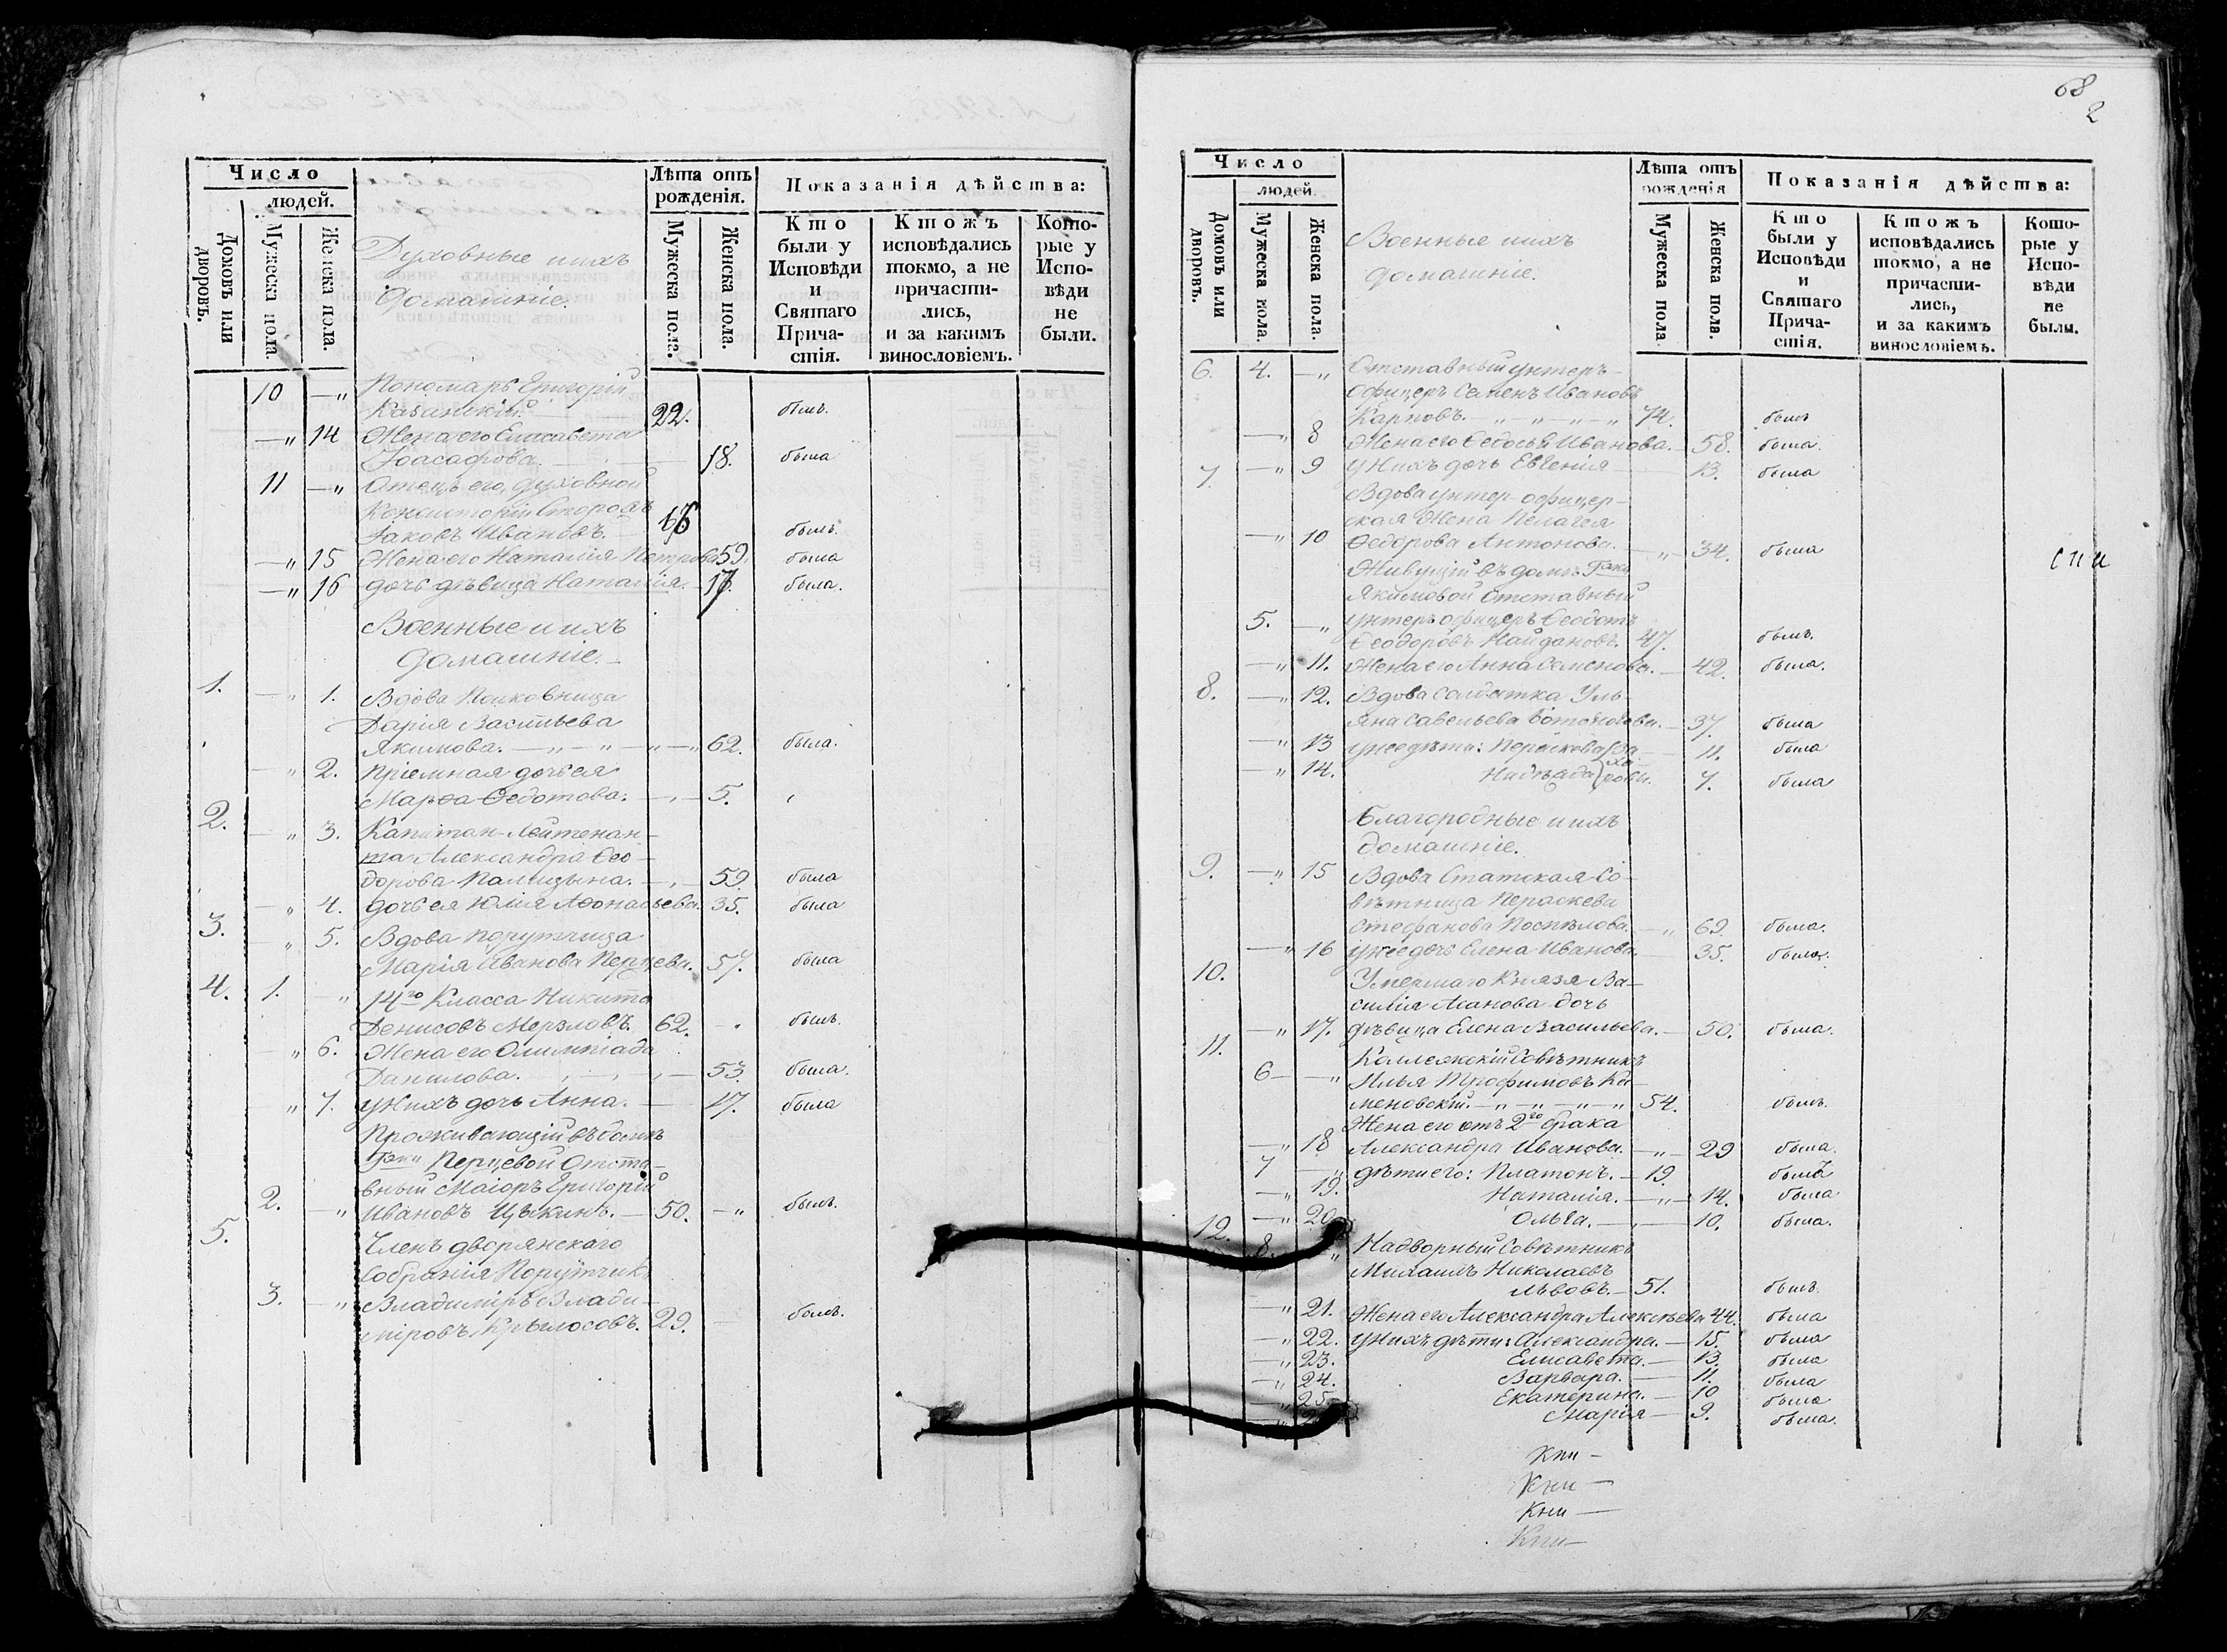 Число
людей.
Домовъ или дворовъ.
Мужеска пола.
Женска пола.
Духовные и ихъ
домашніе.
Лѣта отъ рожденія.
Мужеска пола.
Женска пола.
Показанія дѣйства:
Кто были у Исповѣди и Святаго Прича-стія.
Ктожъ исповѣдались токмо, а не причасти-лись, и за какимъ винословіемъ.
Кото-рые у Испо-вѣди не были.
10 — „ Пономарь Григорій
Казанскій. 22. былъ.
— „ 14 Жена его Елисавета
Іоасафова. — 18. была
11 — „ Отецъ его, духовной
Консисторіи Сторожъ
Іаковъ Ивановъ. былъ.
— „ 15 Жена его Наталія Петрова 59. была
— „ 16 дочь дѣвица Наталія. — была.
Военные и ихъ
домашніе. —
1. — „ 1. Вдова Полковница
Дарія Васильева
Якимова. — „ — „ — „ — „ 62. была.
— „ 2. Пріемная дочь ея
Марѳа Ѳедотова. — „ — 5.
2. — „ 3. Капитан-Лейтенан-
та Александра Ѳео-
дорова Палицына. — „ — 59. была
— „ 4. дочь ея Юлія Аѳонасьева. 35. была
3. — „ 5. Вдова Порутчица
Марія Иванова Перцева. 57. была
4. 1. — „ 14го Класса Никита
Денисовъ Мерзловъ. 62. — „ былъ.
— „ 6. Жена его Олимпіада
Данилова. — 53. была.
— „ 7. У нихъ дочь Анна. — 17. была
Проживающій въ домѣ
Гжи Перцевой Отста-
вный Маіоръ Григорій
2. — „ Ивановъ Цѣкинъ. — 50. — „ былъ.
5. Членъ дворянскаго
Собранія Порутчикъ
3. — „ Владиміръ Влади-
міровъ Крылосовъ. 29. — былъ.
68
2
Число
людей.
Домовъ или дворовъ.
Мужеска пола.
Женска пола.
Военные и ихъ
домашніе.
Лѣта отъ рожденія
Мужеска пола.
Женска пола.
Показанія дѣйства:
Кто были у Исповѣди и Святаго Прича-стія.
Ктожъ исповѣдались токмо, а не причасти-лись, и за какимъ винословіемъ.
Кото-рые у Испо-вѣди не были.
6. 4. — „ Отставный унтеръ-
офицеръ Семенъ Ивановъ
Карповъ. „ „ — „ — 74. былъ
— „ 8 Жена его Ѳедосья Иванова. — 58. была.
7. — „ 9 У нихъ дочь Евгенія — 13. была
Вдова унтер-офицер-
ская Жена Пелагея
— „ 10 Ѳедорова Антонова. — „ — 34. была
Живущій въ домѣ Гжи
Якимовой Отставный
5. — „ унтеръ офицеръ Ѳеодотъ
Ѳеодоровъ Найдановъ. 47. былъ.
— „ 11. Жена его Анна Семенова. — 42. была.
8. — „ 12. Вдова солдатка Уль-
яна Савельева — 37. была
— „ 13 У нее дѣти: Параскева — 11. была
— „ 14. Надежда 7. была
Благородные и ихъ
домашніе.
9. — „ 15 Вдова Статская Со-
вѣтница Параскева
Стефанова Поспѣлова. — „ 69. была.
— „ 16 У нее дочь Елена Иванова. — 35. была.
10. Умершаго Князя Ва-
силія Асанова дочь
— „ 17. дѣвица Елена Васильева. — 50. была.
11. Коллежскій Совѣтникъ
6 — „ Илья Трофимовъ Ка-
меновскій. — „ — „ — „ — „ 54. былъ.
Жена его отъ 2го брака
— „ 18 Александра Иванова. — „ — 29 была.
7 — „ дѣти его: Платонъ. — 19. былъ
— „ 19. Наталія. — „ — 14. была
— „ 20. Ольга. — 10. была.
12. 8. — „ Надворный Совѣтникъ
Михаилъ Николаевъ
Львовъ. — 51. былъ.
— „ 21. Жена его Александра Алексѣева 44. была
— „ 22. У нихъ дѣти: Александра. — 15. была
— „ 23. Елисавета. — 13. была
— „ 24. Варвара. — 11. была
— „ 25. Екатерина. — 10 была
Марія — 9. была.
Кни —
Кни —
Кни —
Кни —